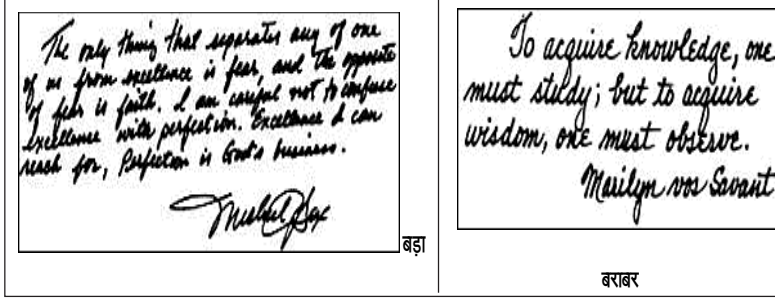 The only thing that separates any of one
of us from excellence is fear, and the opposite
of fear is faith. I am careful not to confuse
excellence with perfection. Excellence I can
reach for, Perfection is God's business.
बड़ा
To acquire knowledge, one
must study; but to acquire
wisdom, one must observe.
Marilyn vos Savant
बराबर